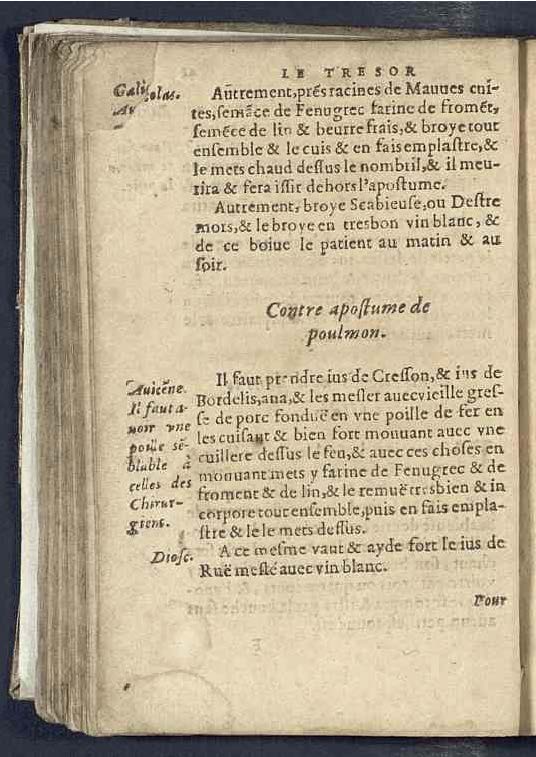 LE TRESOR
Autrement, prés racines de Mauues cui-
tes, semāce de Fenugrec farine de fromēt,
semēce de lin & beurre frais, & broye tout
ensemble & le cuis & en fais emplastre, &
le mets chaud dessus le nombril, & il meu-
rira & fera issir dehors l'apostume.
Autrement, broye Scabieuse, ou Destre
mors, & le broye en tresbon vin blanc, &
de ce boiue le patient au matin & au
soir.
Contre apostume de
poulmon.
Auicēne.
Il faut a-
uoir vne
poille sē-
blable à
celles des
Chirur-
giens.
Il faut prendre ius de Cresson, & ius de
Bordelis, ana, & les mesler auec vieille gres-
se de porc fonduë en vne poille de fer en
les cuisant & bien fort mouuant auec vne
cuillere dessus le feu, & auec ces choses en
mouuant mets y farine de Fenugrec & de
froment & de lin, & le remuë tresbien & in
corpore tout ensemble, puis en fais empla-
stre & le le mets dessus.
Diosc.
A ce mesme vaut & ayde fort le ius de
Ruë meslé auec vin blanc.
Pour